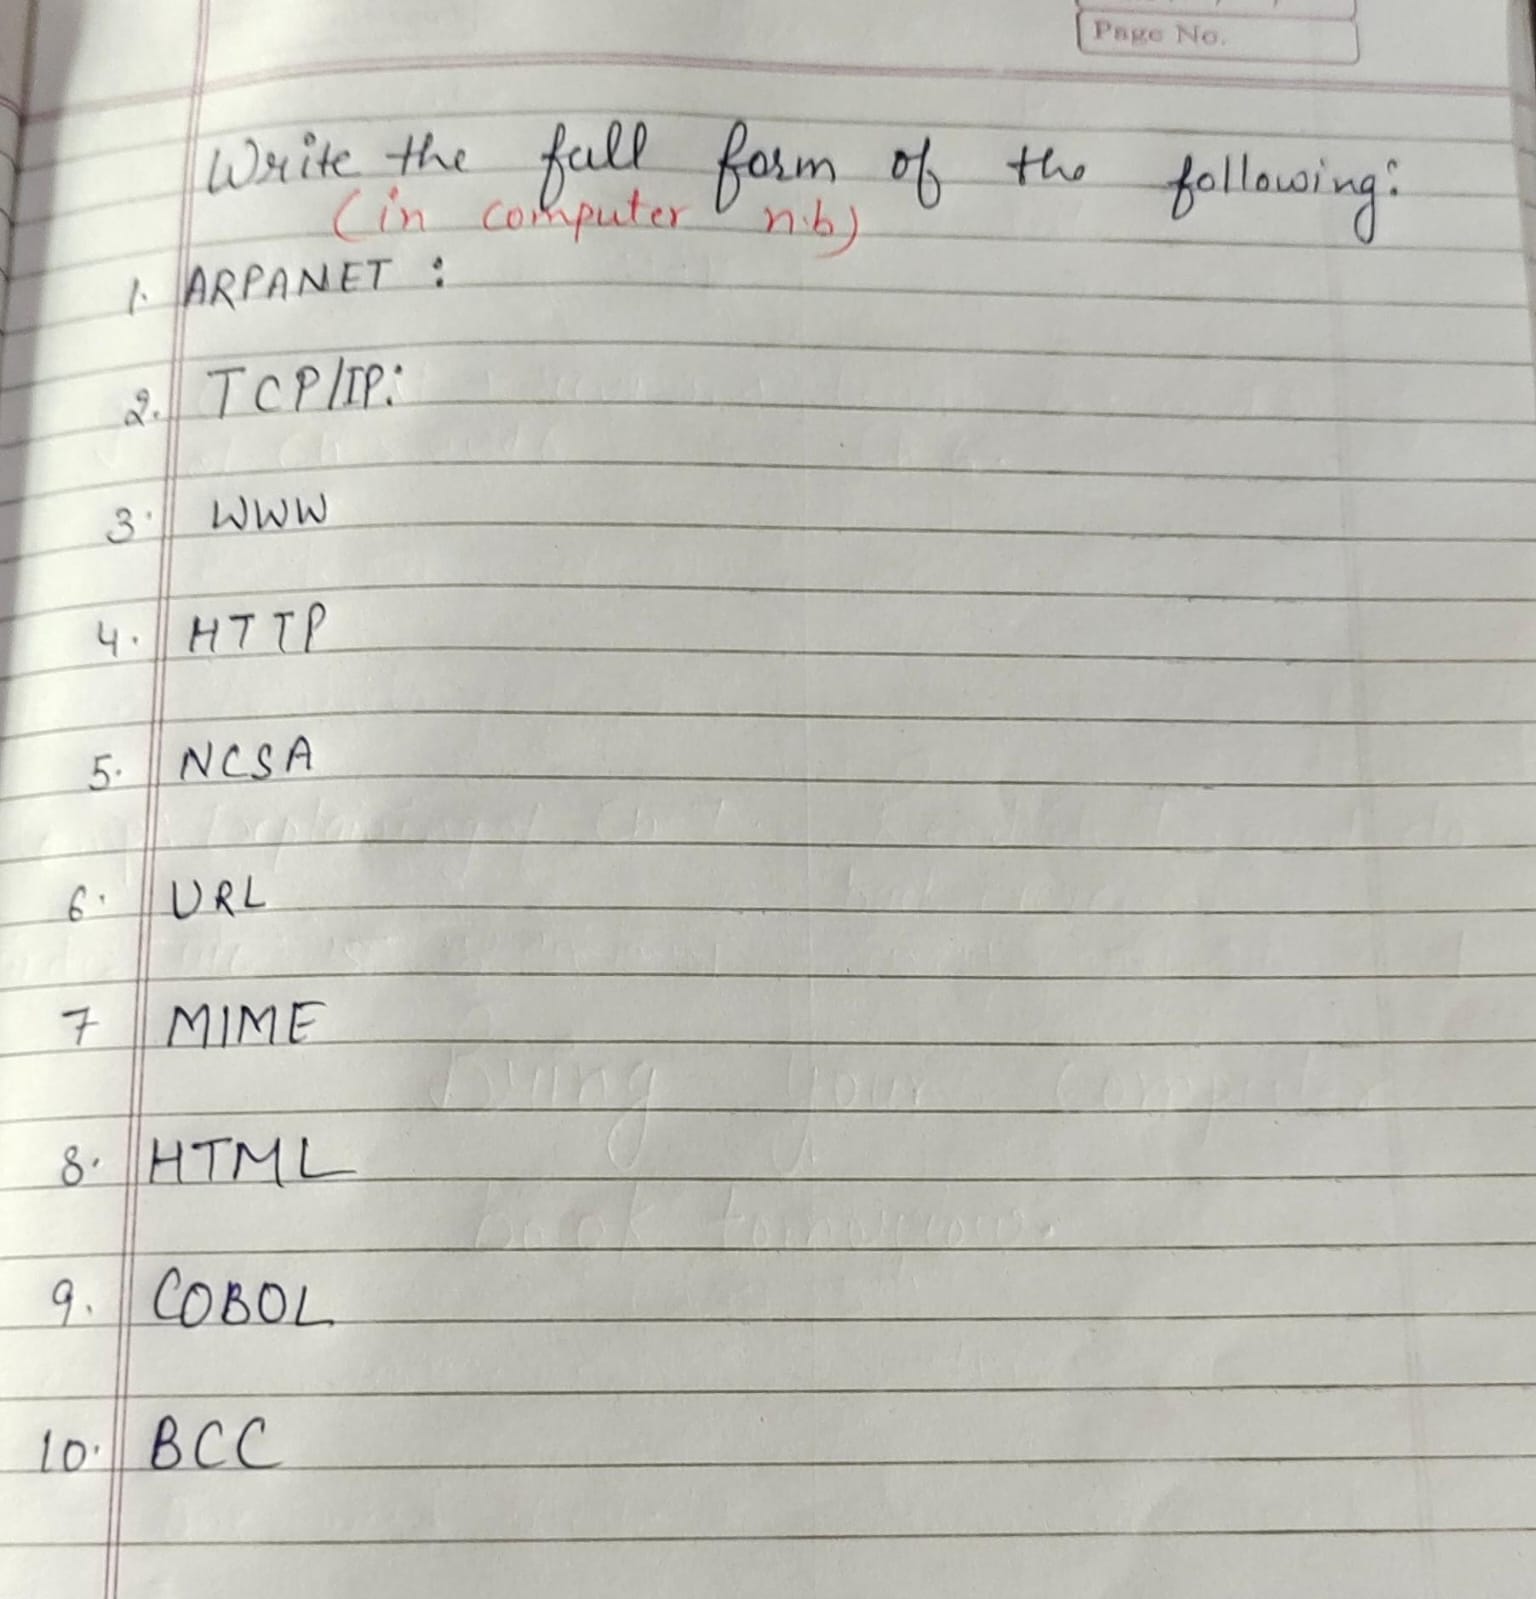 Page No.
Write the full form of the following:
(in computer n.b)
1. ARPANET :
2. TCP/IP:
3. WWW
4. HTTP
5. NCSA
6. URL
7 MIME
8. HTML
9. COBOL
10. BCC